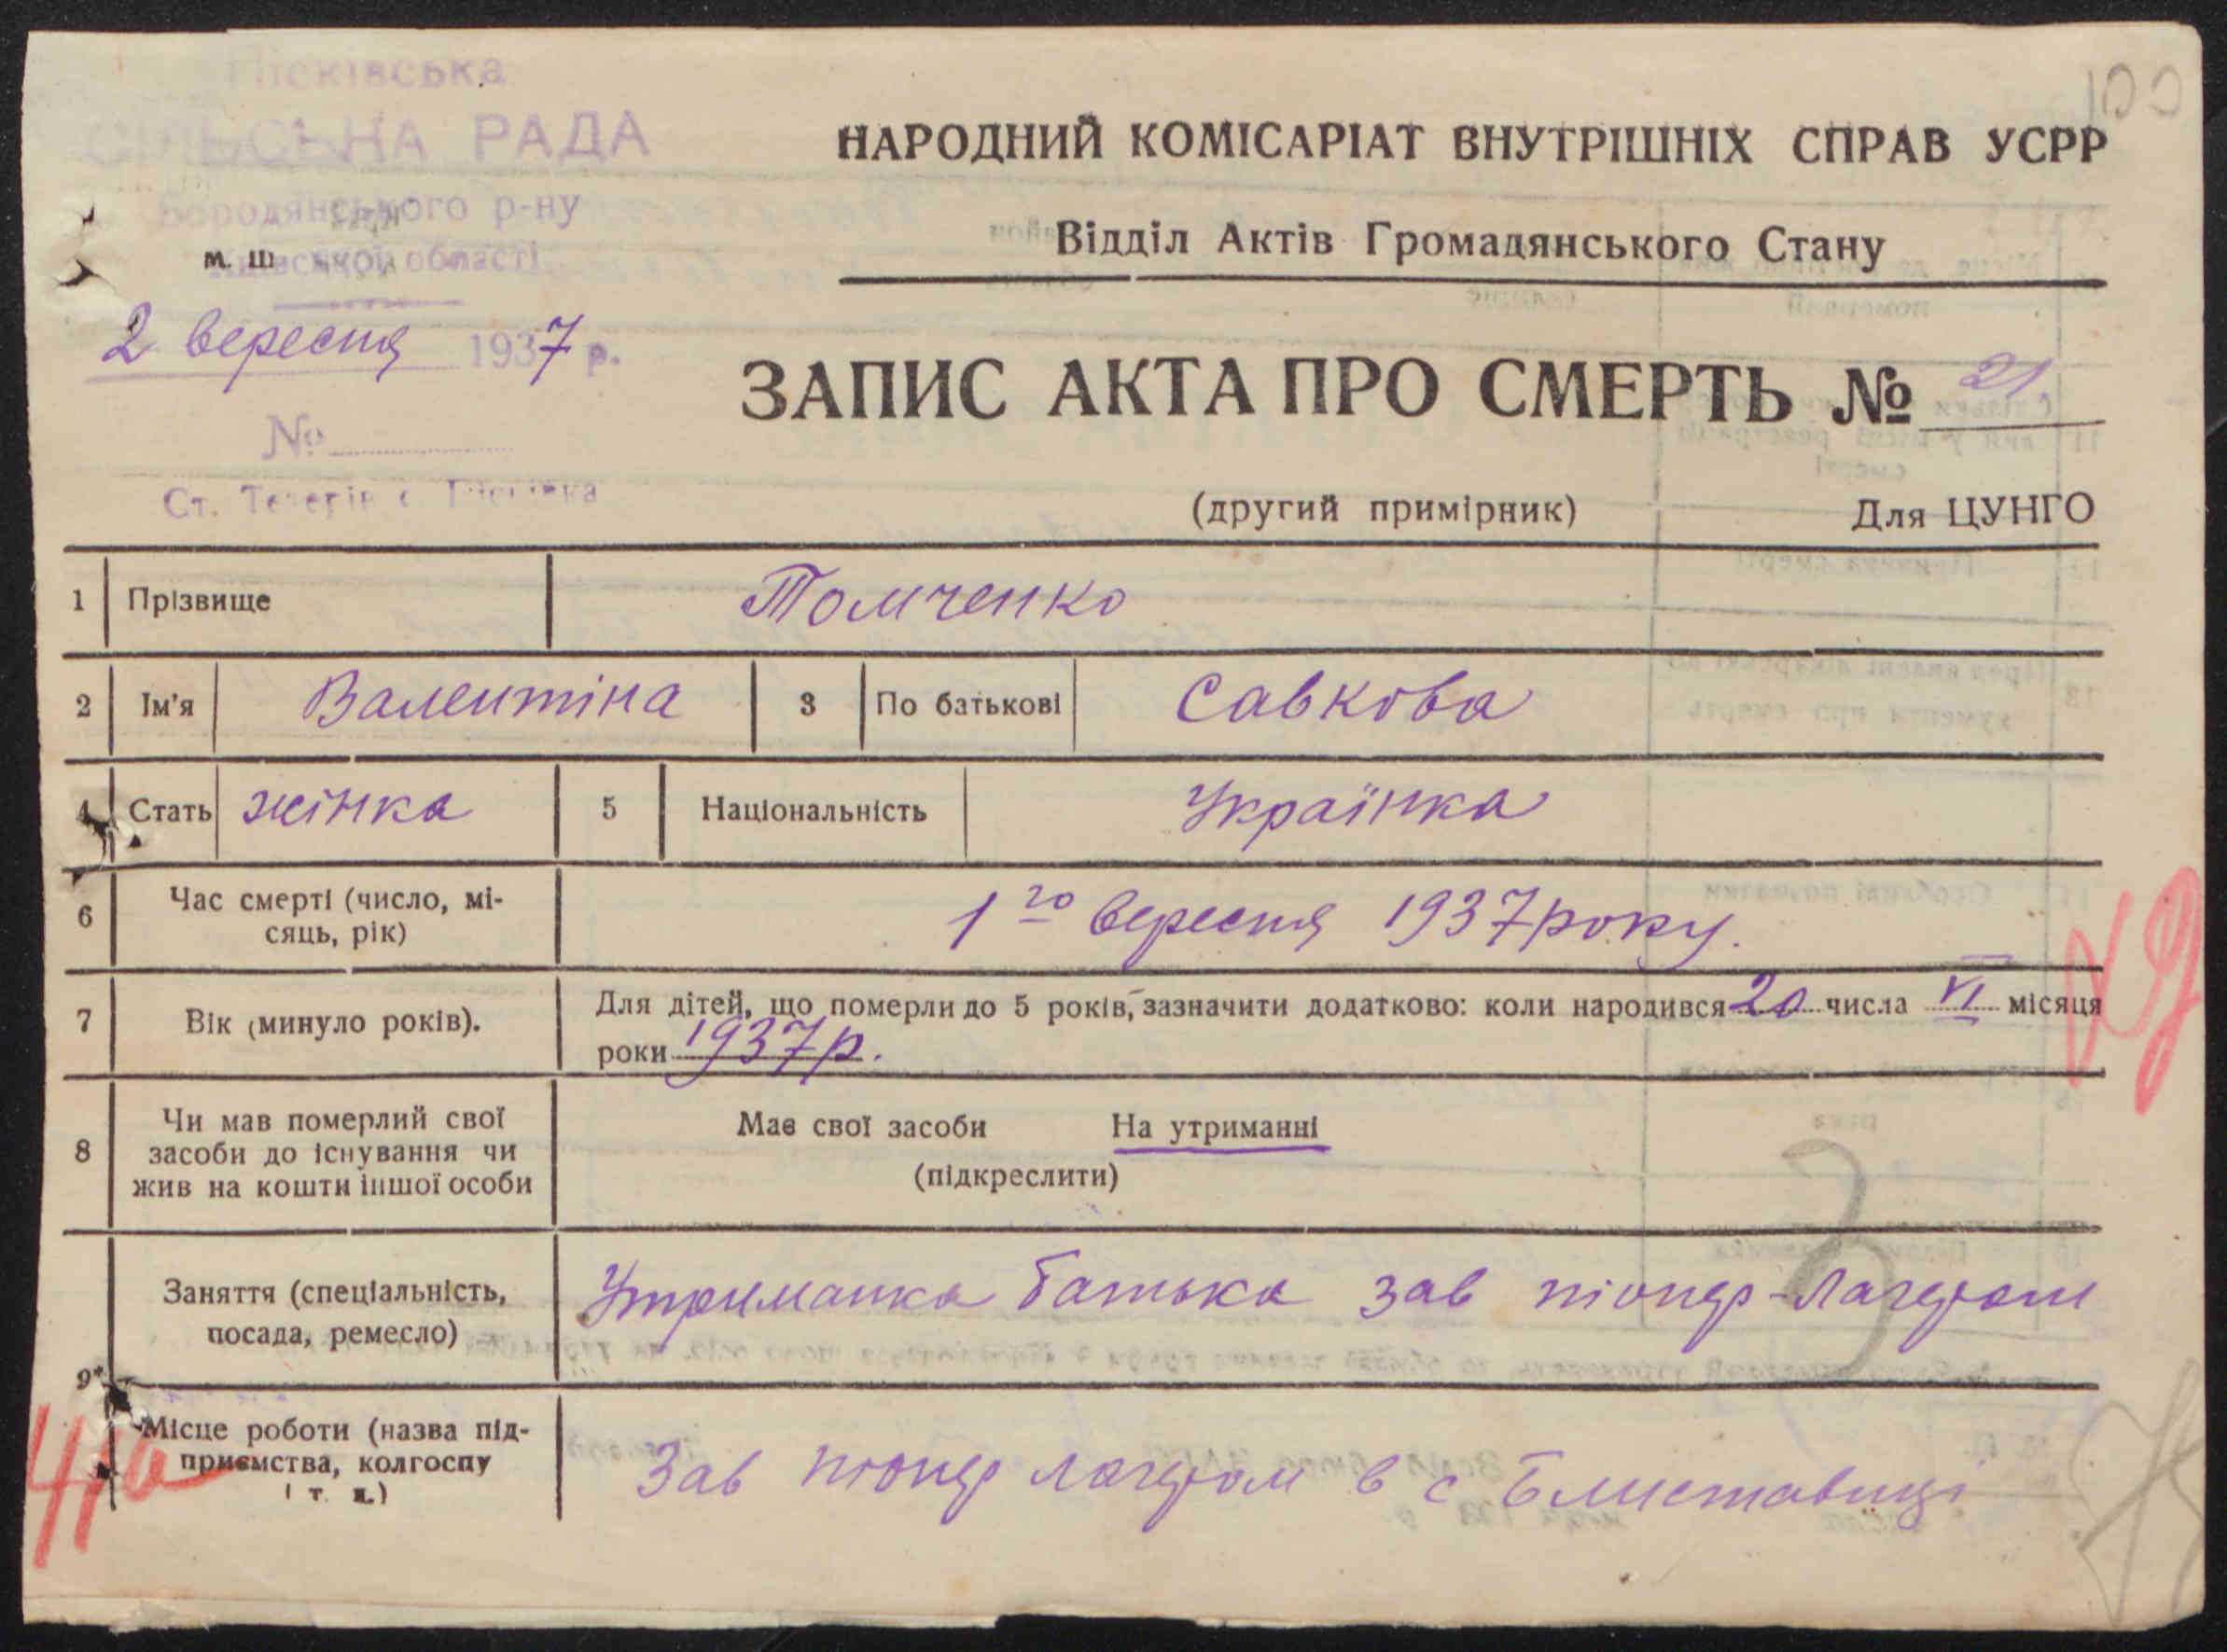 Пісківська
СІЛЬСЬКА РАДА
Бородянського р-ну
Київської області
м. ш
2 вересня 1937 р.
№
Ст. Тетерів с. Пісківка
100
НАРОДНИЙ КОМІСАРІАТ ВНУТРІШНІХ СПРАВ УСРР
Відділ Актів Громадянського Стану
ЗАПИС АКТА ПРО СМЕРТЬ № 21
(другий примірник) Для ЦУНГО
1 Прізвище Томченко
2 Ім'я Валентіна 3 По батькові Савкова
4 Стать жінка 5 Національність Українка
6 Час смерті (число, мі-
сяць, рік) 1го вересня 1937 року.
7 Вік (минуло років). Для дітей, що померли до 5 років, зазначити додатково: коли народився 20 числа VI місяця
роки 1937 р.
8 Чи мав померлий свої
засоби до існування чи
жив на кошти іншої особи
Має свої засоби На утриманні
(підкреслити)
Заняття (спеціальність,
посада, ремесло) Утриманка батька зав піонер-лагером
9
Місце роботи (назва під-
приємства, колгоспу
і т. д.) Зав піонер лагером в с Блиставиці